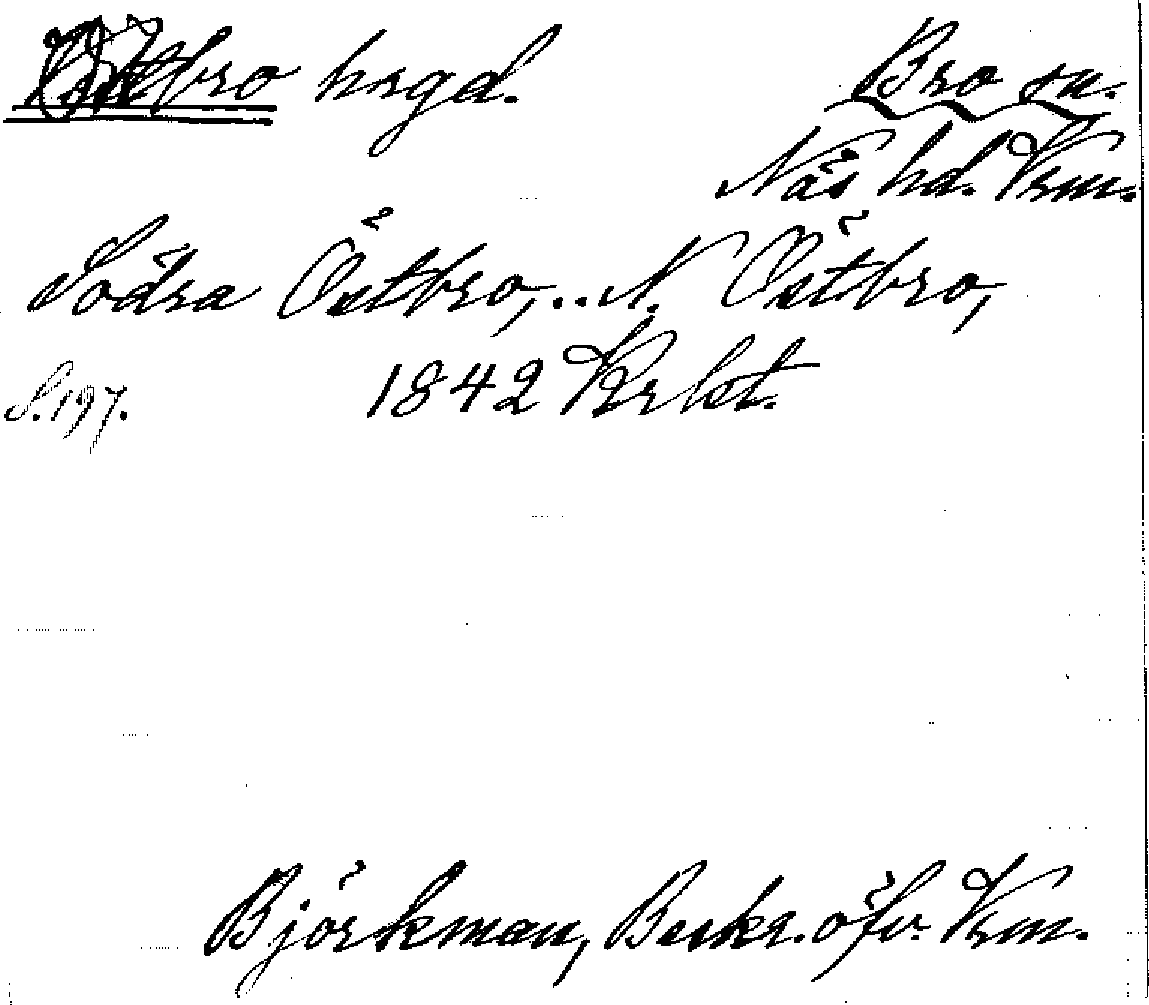 Östbro hrgd.
Bro sn.
Näs hd. Vrm.
Södra Östbro, .. N. Östbro,
S. 197. 1842 Krkt.
Björkman, Beskr. öfv. Vrm.